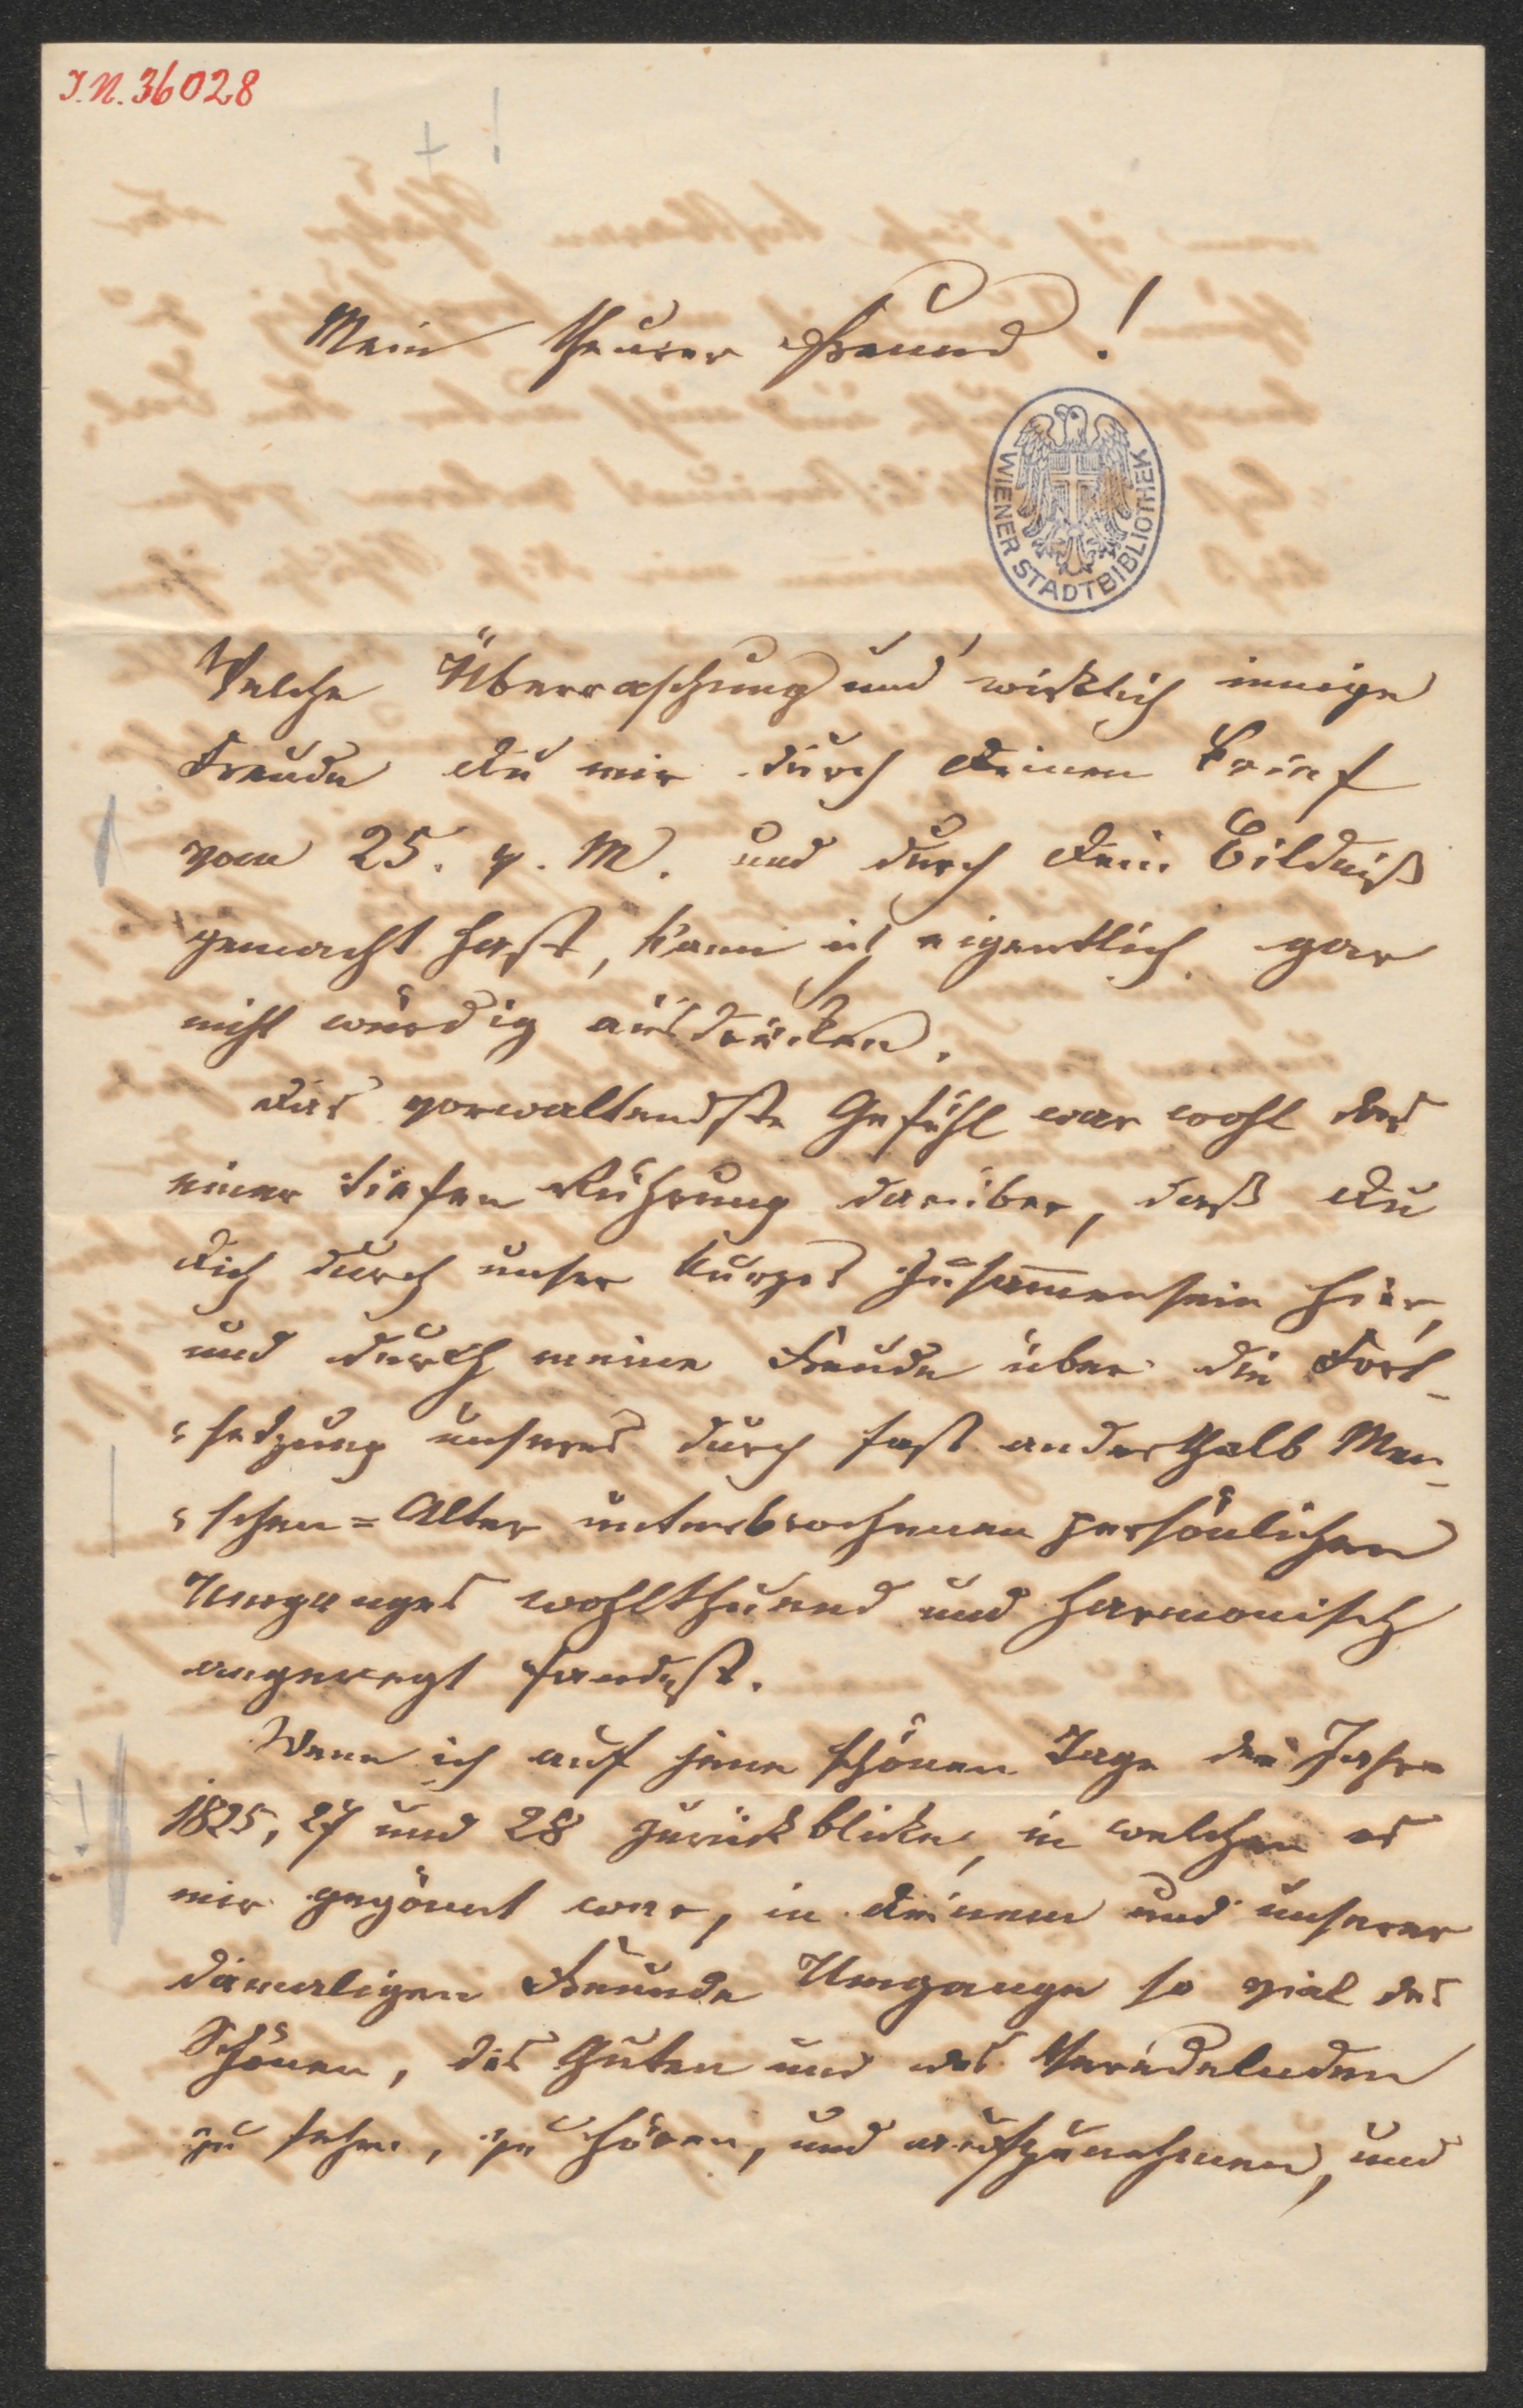 I.N. 36028
Mein theurer Freund!
WIENER STADTBIBLIOTHEK
Welche Überraschung und wirklich innige
Freude Du mir durch Deinen Brief
vom 25. v. M. und durch Dein Bildniß
gemacht hast, kann ich eigentlich gar
nicht würdig ausdrücken.
Das vorwaltendste Gefühl war wohl das
einer tiefen Rührung darüber, daß Du
Dich durch unser kurzes Zusammensein hier,
und durch meine Freude über die Fort-
-setzung unseres durch fast anderthalb Men-
-schen=Alter unterbrochenen persönlichen
Umganges wohlthuend und harmonisch
angeregt fandest.
Wenn ich auf jene schönen Tage der Jahre
1825, 27 und 28 zurückblicke, in welchen es
mir gegönnt war, in Deinem und unserer
damaligen Freunde Umgange so viel des
Schönen, des Guten und des Veredelnden
zu sehen, zu hören, und aufzunehmen, und